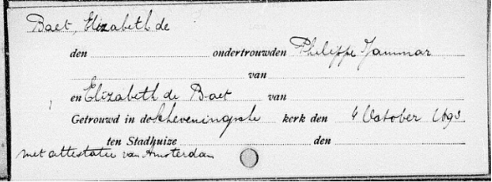 Baet, Elizabeth de
den ondertrouwden Philippe Jammar
van
en Elizabeth de Baet van
Getrouwd in de Scheveningsche kerk den 4 October 1693
ten Stadhuize den
met attestatie van Amsterdam